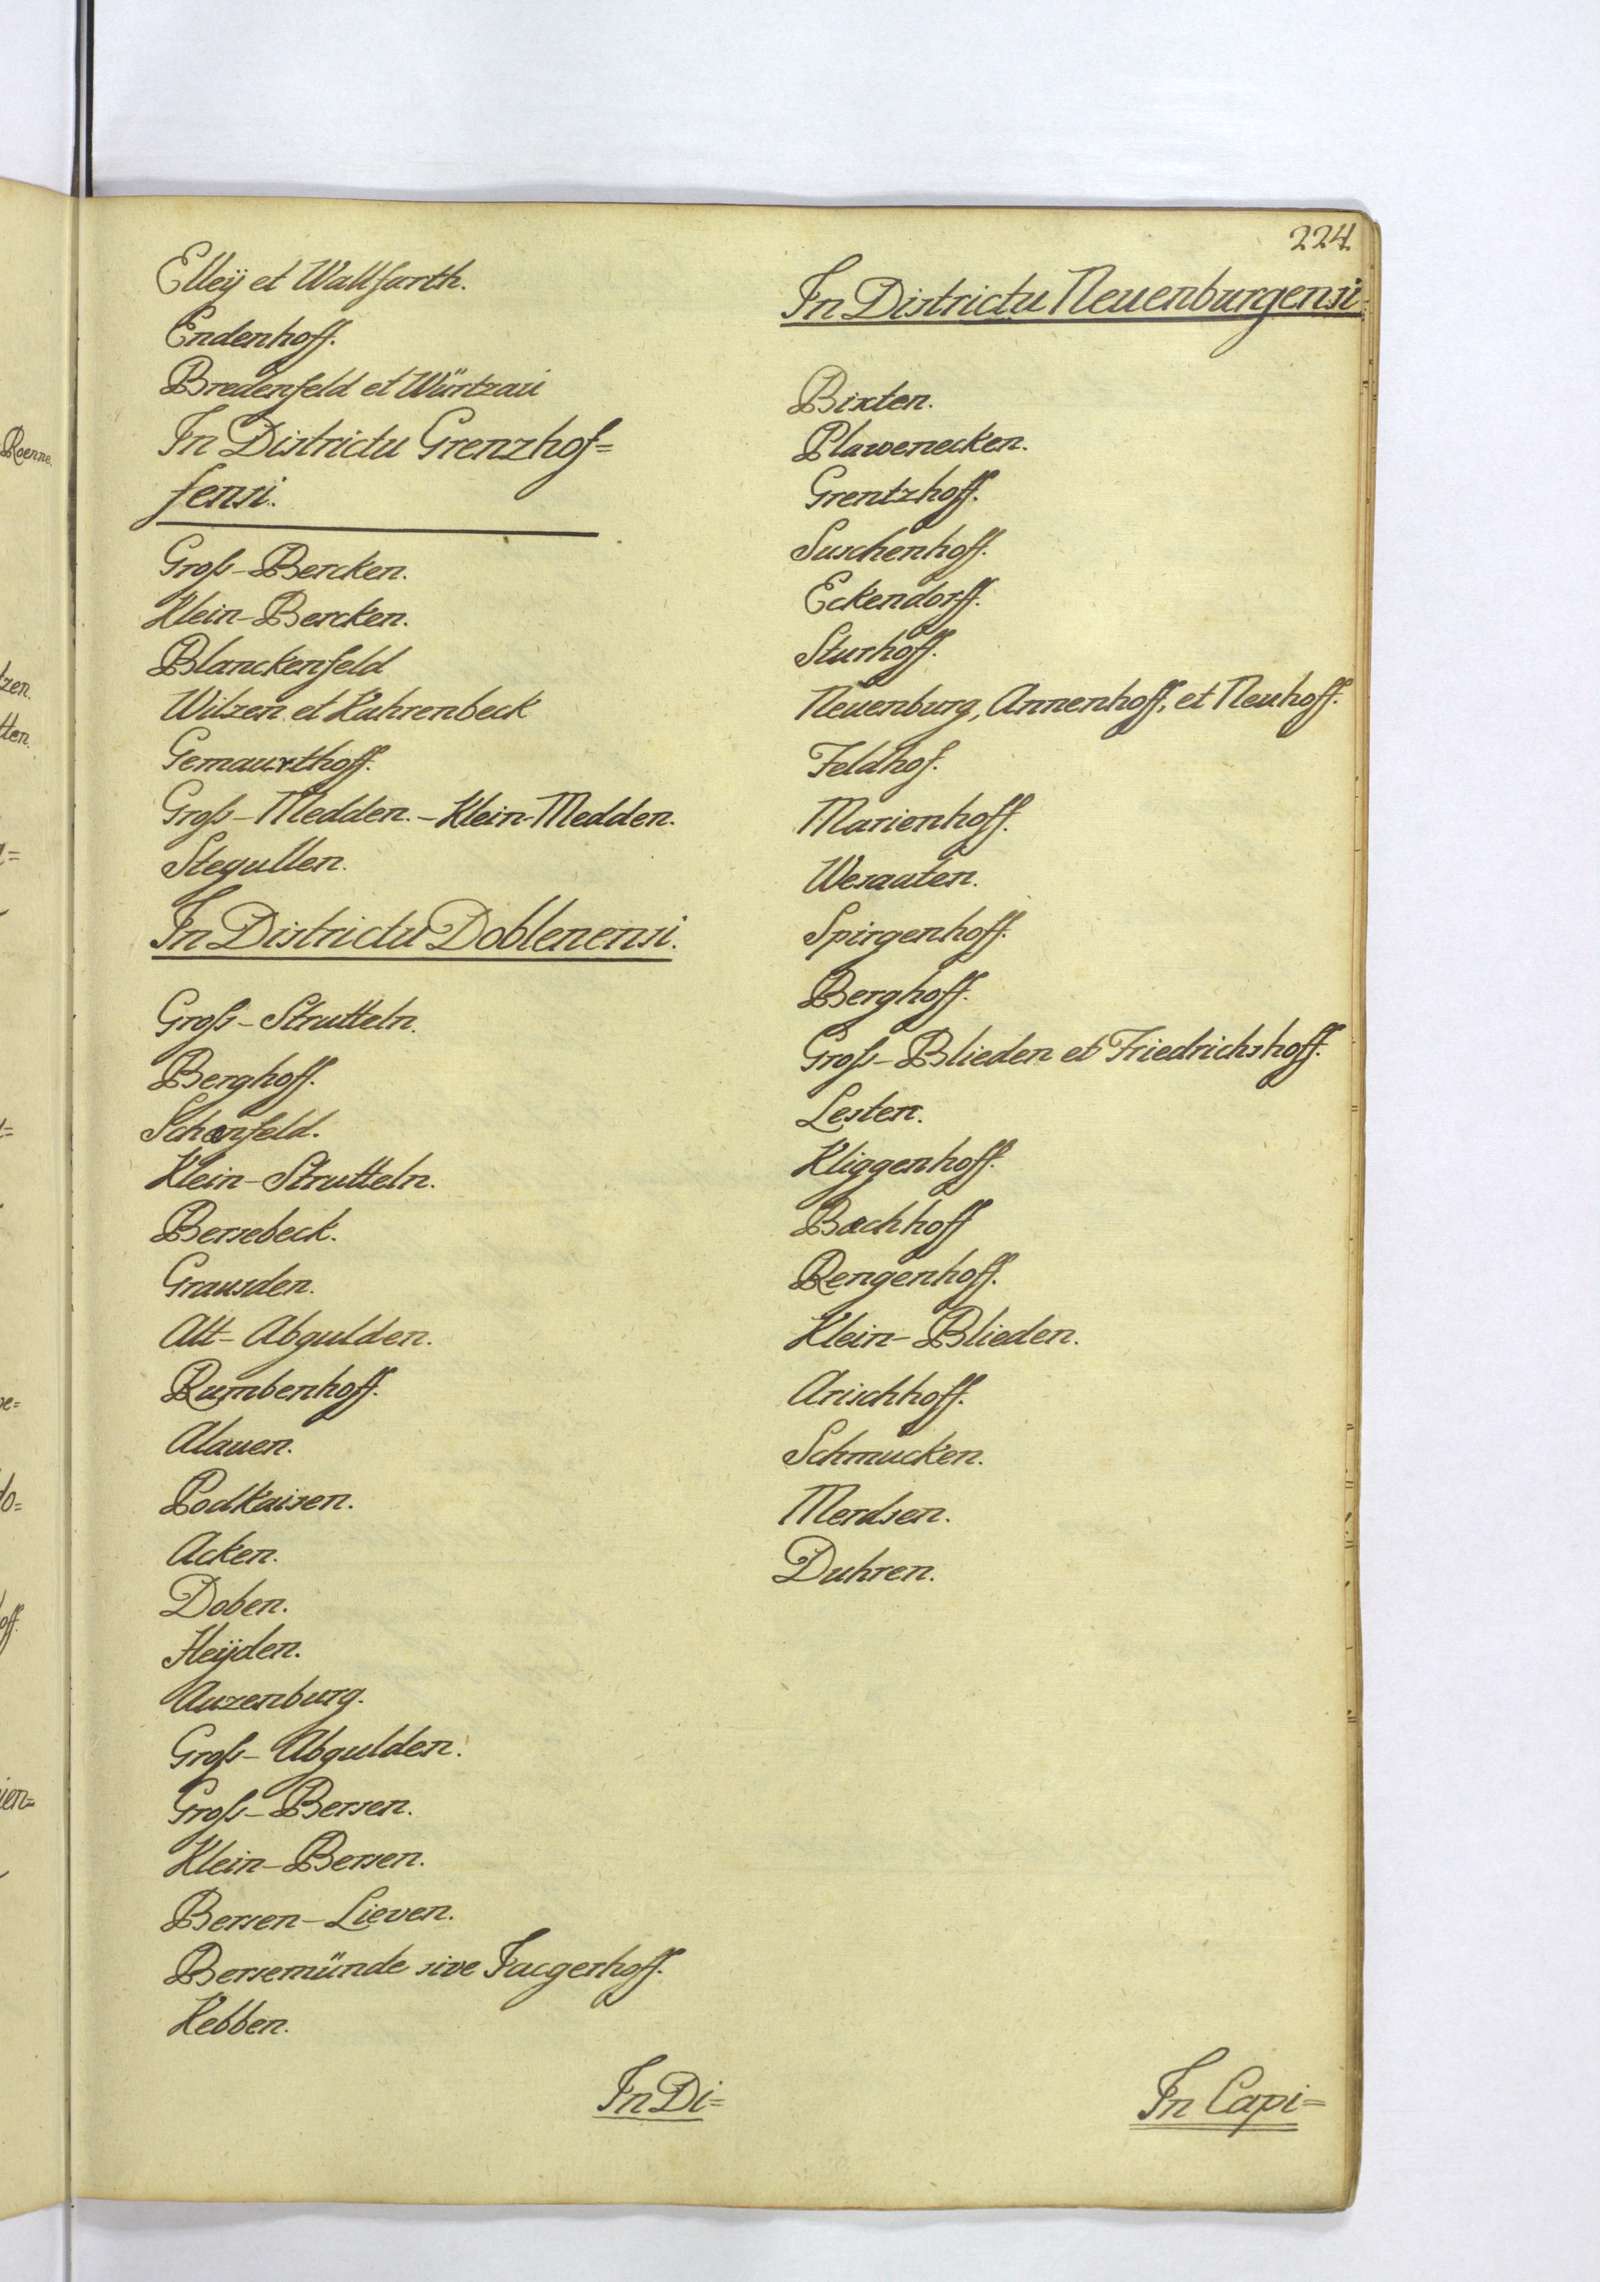 224
Elleÿ et Wallfarth.
Endenhoff.
Bredenfeld et Würtzau
In Districtu Grenzhof=
fensi.
Groß-Bercken.
Klein-Bercken.
Blanckenfeld
Wilzen et Kahrenbeck
Gemaurthoff.
Groß-Medden.-Klein-Medden.
Stegullen.
In Districtu Doblenensi.
Groß-Strutteln.
Berghoff.
Schenfeld.
Klein-Strutteln.
Bersebeck.
Grausden.
Alt-Abgulden.
Rumbenhoff.
Alauen.
Podkaisen.
Acken.
Doben.
Heÿden.
Auzenburg.
Groß-Abgulden.
Groß-Bersen.
Klein-Bersen.
Bersen-Lieven.
Bersemünde sive Faegerhoff.
Kebben.
In Di=
In Districtu Neuenburgensi.
Bixten.
Plawenecken.
Grentzhoff.
Suschenhoff.
Eckendorff.
Sturhoff.
Neuenburg, Annenhoff, et Neuhoff.
Feldhof.
Marienhoff.
Wesauten.
Spirgenhoff.
Berghoff.
Groß-Blieden et Friedrichshoff.
Lesten.
Kliggenhoff.
Bachhoff
Rengenhoff.
Klein-Blieden.
Arischhoff.
Schmucken.
Merdsen.
Duhren.
In Capi=